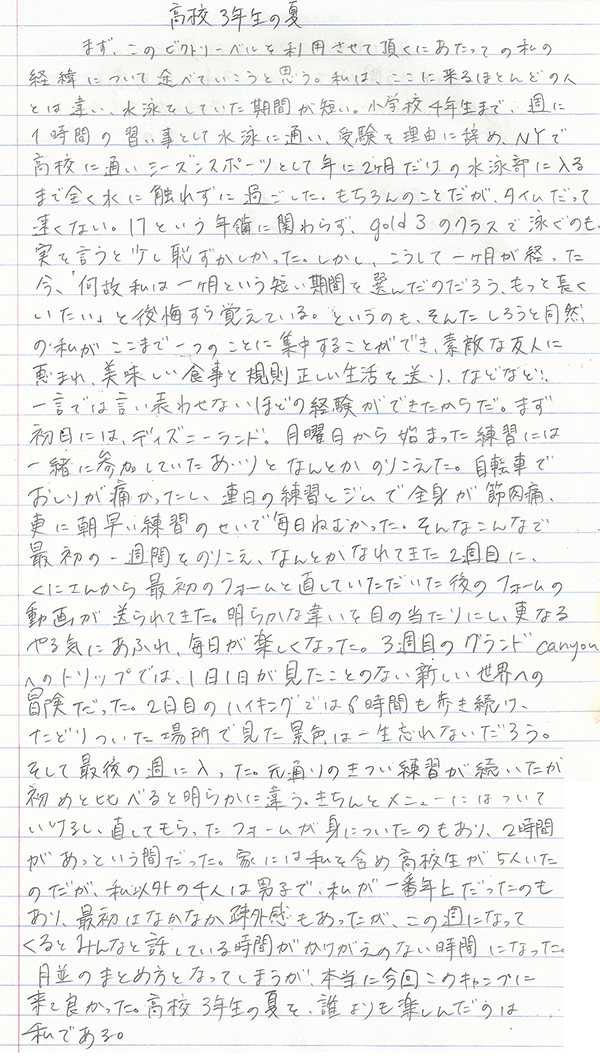 高校3年生の夏
まず、このビクトリーベルを利用させて頂くにあたっての私の
経緯について述べていこうと思う。私は、ここに来るほとんどの人
とは違い、水泳をしていた期間が短い。小学校4年生まで、週に
1時間の習い事として水泳に通い、受験を理由に辞め、NYで
高校に通いシーズンスポーツとして年に2ヶ月だけの水泳部に入る
まで全く水に触れずに過ごした。もちろんのことだが、タイムだって
速くない。17という年齢に関わらず、gold 3 のクラスで泳ぐのも、
実を言うと少し恥ずかしかった。しかし、こうして一ヶ月が経った
今、「何故私は一ヶ月という短い期間を選んだのだろう、もっと長く
いたい」と後悔すら覚えている。というのも、そんたしろうと同然
の私がここまで一つのことに集中することができ、素敵な友人に
恵まれ、美味しい食事と規則正しい生活を送り、などなど、、
一言では言い表わせないほどの経験ができたからだ。まず
初日には、ディズニーランド。月曜日から始まった練習には
一緒に参加していたあいりとなんとかのりこえた。自転車で
おしりが痛かったし、連日の練習とジムで全身が筋肉痛、
更に朝早い練習のせいで毎日ねむかった。そんなこんなで
最初の一週間をのりこえ、なんとかなれてきた2週目に、
くにさんから最初のフォームと直していただいた後のフォームの
動画が送られてきた。明らかな違いを目の当たりにし、更なる
やる気にあふれ、毎日が楽しくなった。3週目のグランドcanyon
へのトリップでは、1日1日が見たことのない新しい世界への
冒険だった。2日目のハイキングでは8時間も歩き続け、
たどりついた場所で見た景色は一生忘れないだろう。
そして最後の週に入った。元通りのきつい練習が続いたが
初めと比べると明らかに違う。きちんとメニューにはついて
いけるし、直してもらったフォームが身についたのもあり、2時間
があっという間だった。家には私を含め高校生が5人いた
のだが、私以外の4人は男子で、私が一番年上だったのも
あり、最初はなかなか疎外感もあったが、この週になって
くるとみんなと話している時間がかけがえのない時間になった。
月並のまとめ方となってしまうが、本当に今回このキャンプに
来て良かった。高校3年生の夏を、誰よりも楽しんだのは
私である。